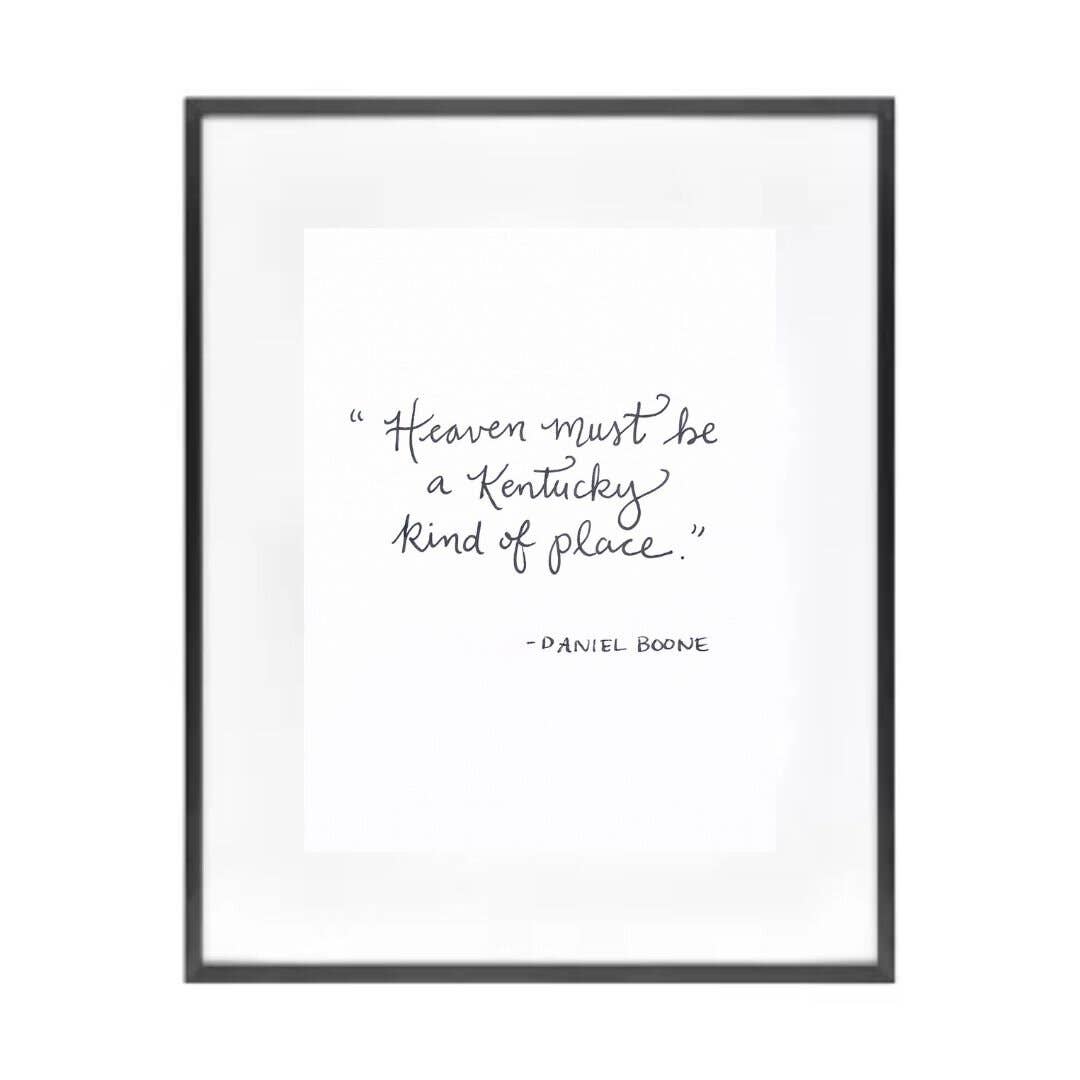 “ Heaven must be
a Kentucky
kind of place.”
-DANIEL BOONE